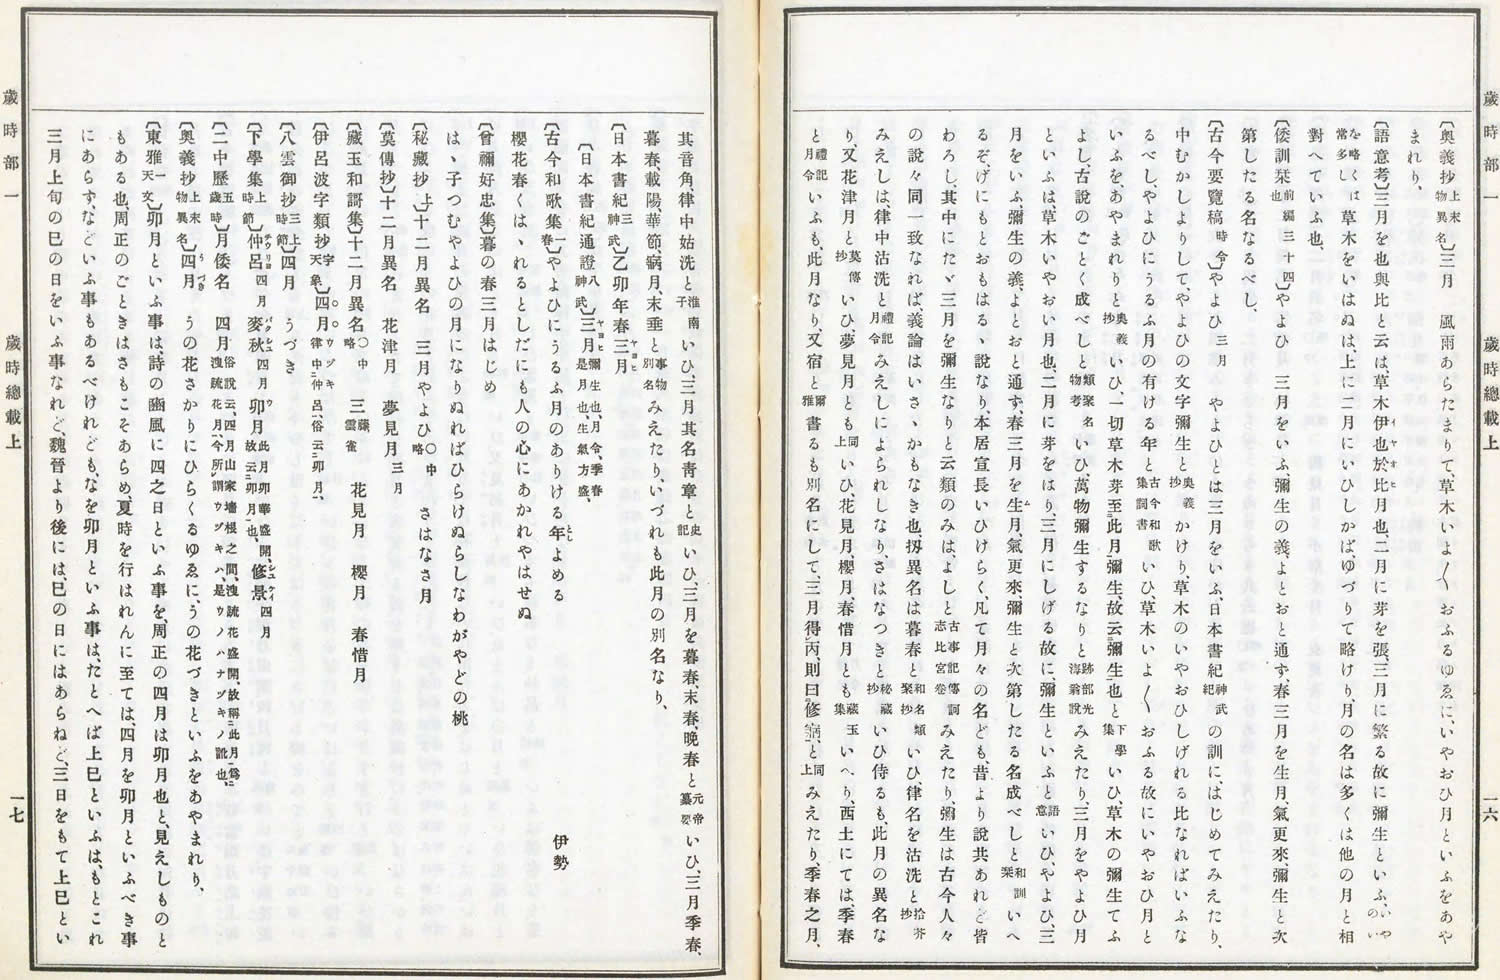 歲時部一　歲時總載上　一六
〔奥義抄上末物異名〕三月　風雨あらたまりて、草木いよ〳〵おふるゆゑに、いやおひ月といふをあや
まれり、
〔語意考〕三月を也與比と云は、草木伊也於比月也、二月に芽を張三月に繁る故に彌生といふ、いやのい
を略くは常多し、草木をいはぬは、上に二月にいひしかば、ゆづりて略けり、月の名は多くは他の月と相
對へていふ也、
〔倭訓栞前編三十四也〕やよひ　三月をいふ、彌生の義、よとおと通ず、春三月を生月、氣更來、彌生と次
第したる名なるべし、
〔古今要覽稿時令〕やよひ三月　やよひとは三月をいふ、日本書紀神武紀の訓に、はじめてみえたり、
中むかしよりしてやよひの文字彌生と奥義抄かけり、草木のいやおひしげれる比なればいふな
るべし、やよひにうるふ月の有ける年と古今和歌集詞書いひ、草木いよ〳〵おふる故にいやおひ月と
いふを、あやまれりと奥義抄いひ、一切草木芽至此月彌生、故云彌生也と下學集いひ、草木の彌生てふ
よし、古説のごとく成べしと類聚名物考いひ、萬物彌生するなりと跡部光海翁説みえたり、三月をやよひ月
といふは、草木いやおい月也、二月に芽をはり三月にしげる故に、彌生といふと語意いひ、やよひ、三
月をいふ、彌生の義、よとおと通ず、春三月を生月、氣更來、彌生と次第したる名成べしと和訓栞いへ
るぞ、げにもとおもはるゝ説なり、本居宣長いひけらく、凡て月々の名ども、昔より説共あれど皆
わろし、其中にたゞ三月を彌生なりと云類のみは、よしと古事記傳訶志比宮卷みえたり、彌生は古今人々
の説々同一致なれば義論はいさゝかもなき也、扨異名は暮春と和名類聚抄いひ、律名を沽洗と拾芥抄
みえしは、律中沽洗と禮記月令みえしによられしなり、さはなつきと秘藏抄いひ侍るも、此月の異名な
り、又花津月と莫傳抄いひ、夢見月とも同上いひ、花見月、櫻月、春惜月とも藏玉集いへり、西土にては、季春
と禮記月令いふも、此月なり、又宿と爾雅書るも別名にして、三月得丙則曰修寎と同上みえたり、季春之月、
歲時部一　歲時總載上　一七
其音角、律中姑洗と淮南子いひ、三月其名青章と史記いひ、三月を暮春、末春、晩春と元帝纂要いひ、三月季春、
暮春、載陽、華節、寎月、末垂と事物別名みえたり、いづれも此月の別名なり、
〔日本書紀三神武〕乙卯年春三月
〔日本書紀通證八神武〕三月彌生也、月令、季春是月也、生氣方盛、
〔古今和歌集一春〕やよひにうるふ月のありける年よめる　伊勢
櫻花春くはゝれるとしだにも人の心にあかれやはせぬ
〔曾禰好忠集〕暮の春三月はじめ
はゝ子つむやよひの月になりぬればひらけぬらしなわがやどの桃
〔秘藏抄上〕十二月異名　三月やよひ〇中略　さはなさ月
〔莫傳抄〕十二月異名　花津月　夢見月三月
〔藏玉和謌集〕十二月異名〇中略　三藤雲雀　花見月　櫻月　春惜月
〔伊呂波字類抄宇天象〕四月ウヅキ律中仲呂、俗云卯月、
〔八雲御抄三上時節〕四月　うづき
〔下學集上時節〕仲呂四月　麥秋四月　卯月此月卯華盛開、故云卯月也、　修景四月
〔二中歷五歲時〕月倭名　四月俗說云、四月山家墻根之間、洩疏花盛開、故稱此月爲洩疏花月、今所訓ウヅキハ、是ウノハナヅキノ訛也、
〔奥義抄上末物異名〕四月うづき　うの花さかりにひらくるゆゑに、うの花づきといふをあやまれり、
〔東雅一天文〕卯月といふ事は、詩の豳風に四之日といふ事を、周正の四月は卯月也と、見えしものと
もある也、周正のごときはさもこそあらめ、夏時を行はれんに至ては、四月を卯月といふべき事
にあらず、などいふ事もあるべけれども、なを卯月といふ事は、たとへば上巳といふは、もとこれ
三月上旬の巳の日をいふ事なれど、魏晉より後には、巳の日にはあらねど、三日をもて上巳とい